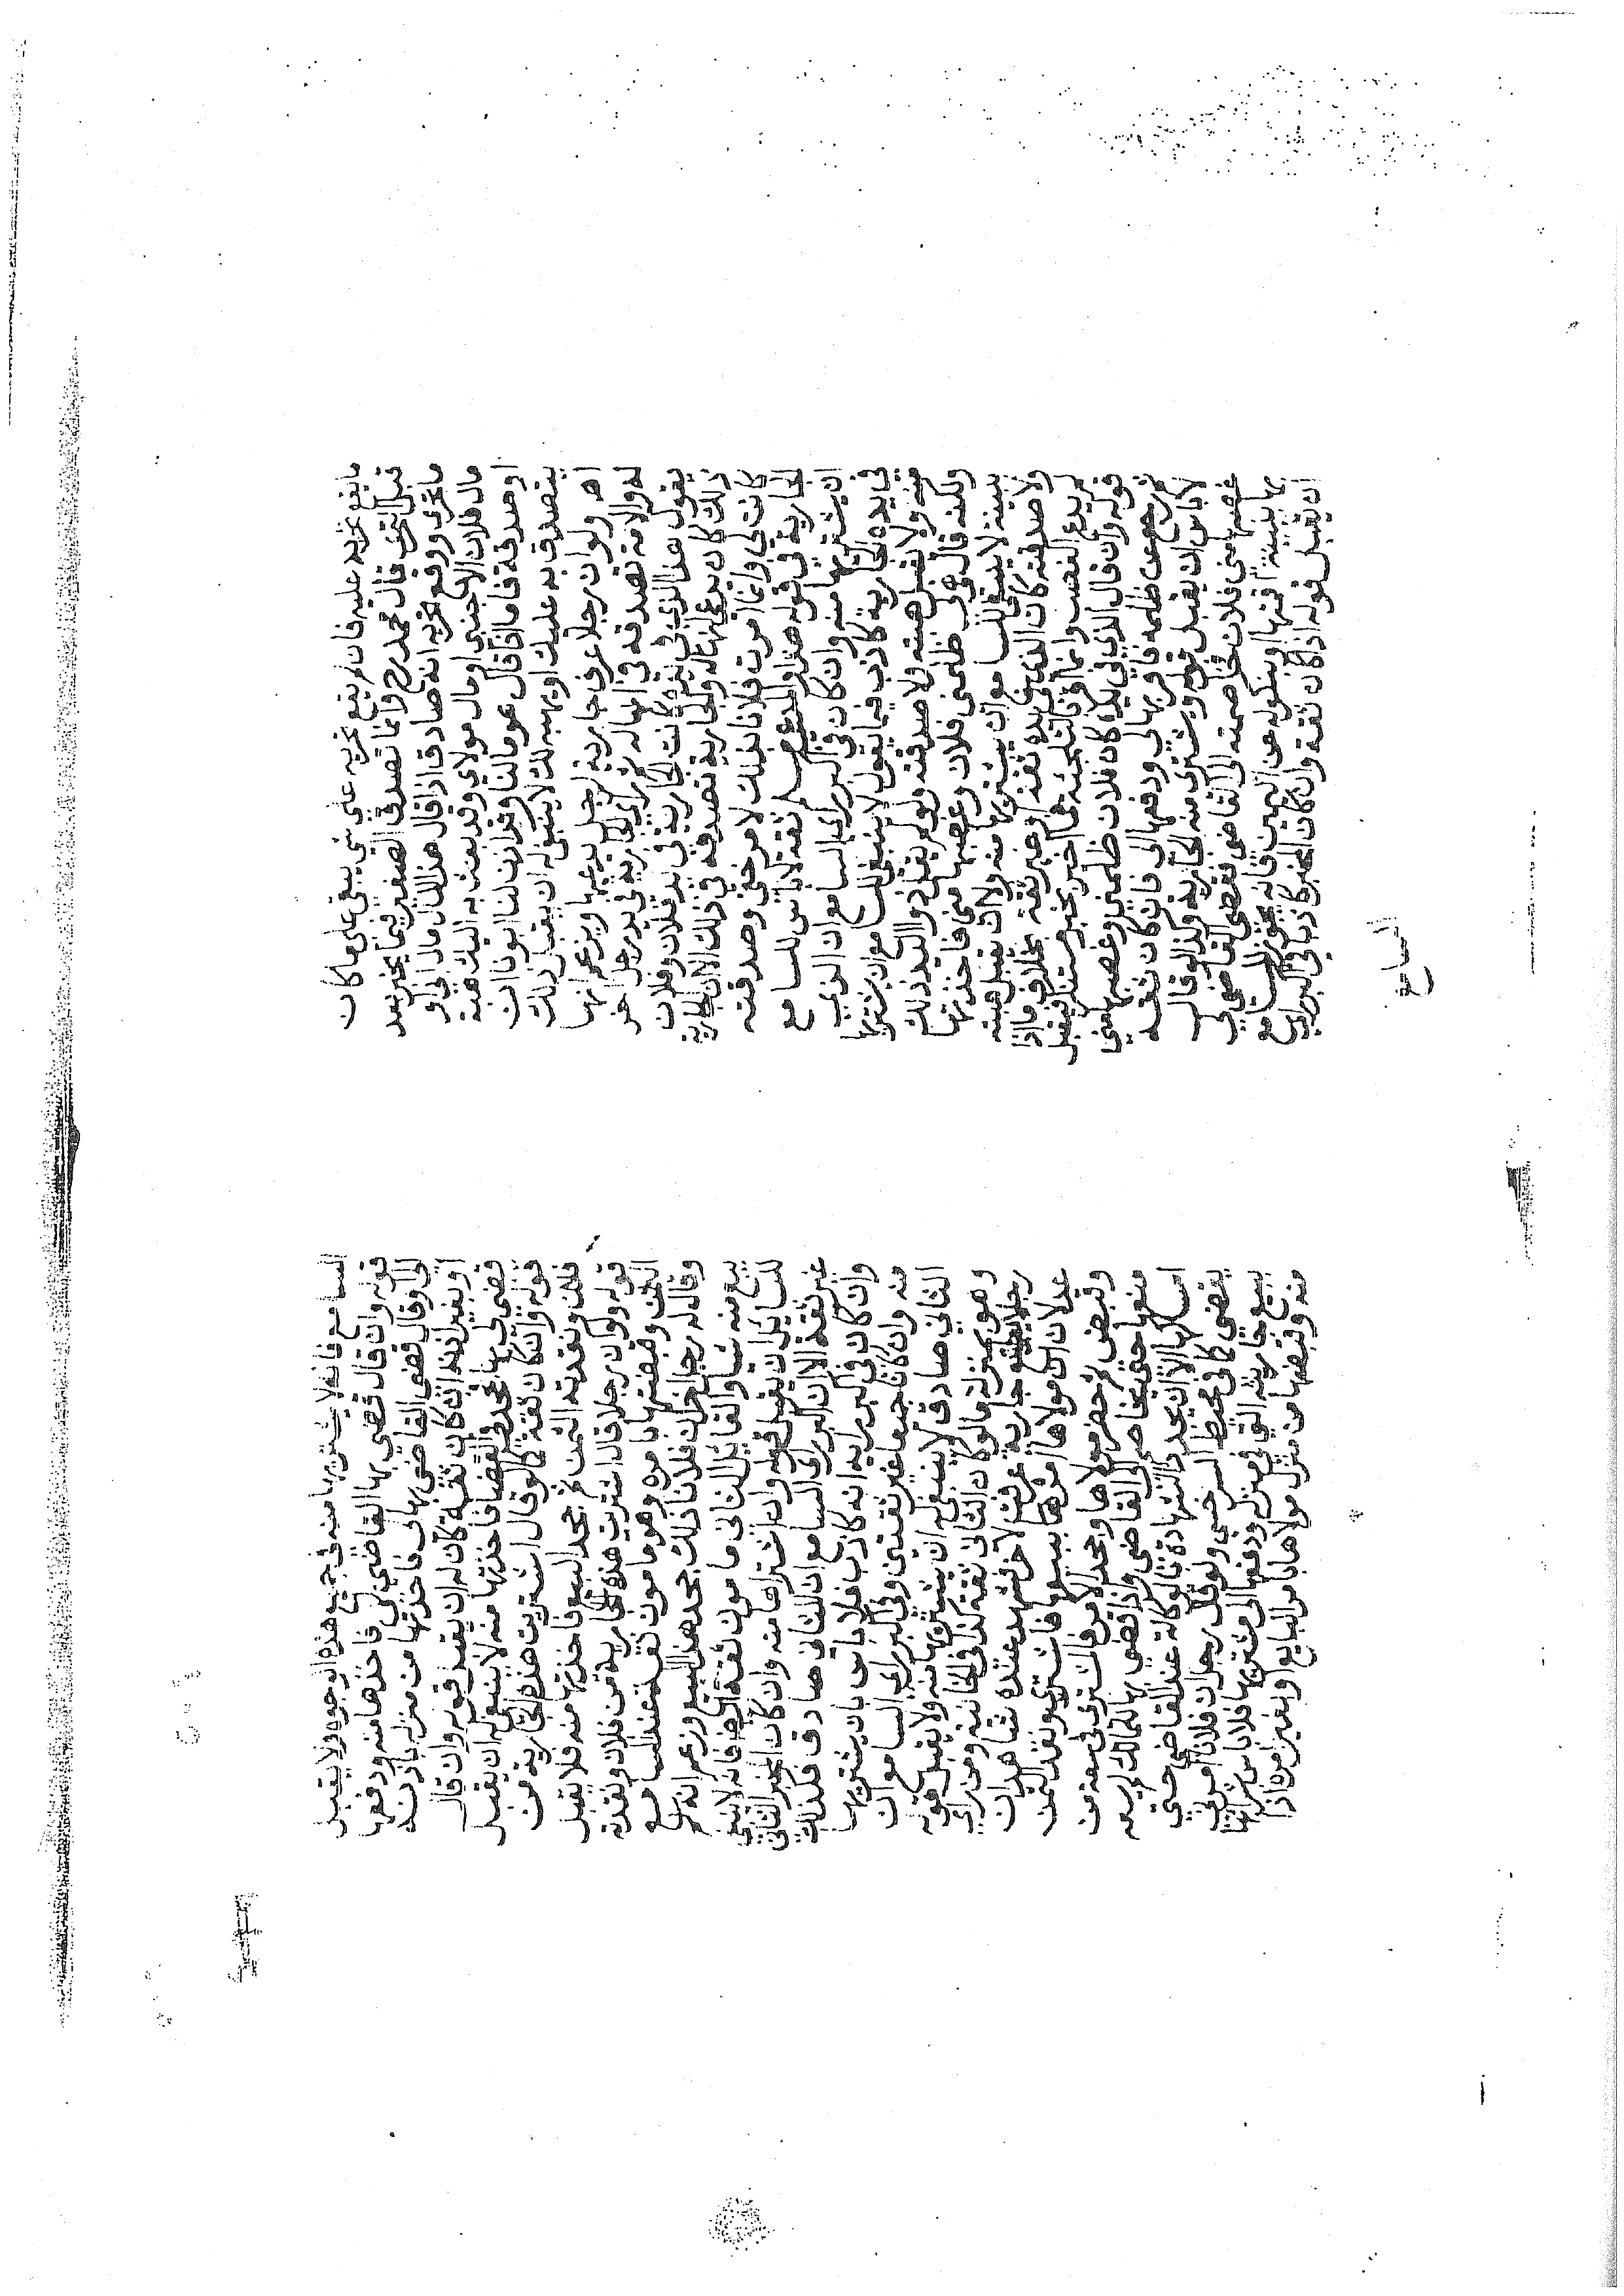 ما يقع تحريه عليه فان لم يقع تحريه على شي يبقى على ما كان
قبل التحري قال محمد رح وانما تصدق الصغير فيما يخبر بعد
ما تحرى ووقع تحريه انه صادق اذا قال هذا المال مال ابي او
مال فلان الاجنبي او مال مولاي وقد بعث به اليك هبة
او صدقة فاما اذا قال هو مالنا وقد اذن لنا ابونا ان
نتصدق به عليك او نهبه لك لا ينبغي له ان يقبل ذلك
اهـ ولو ان رجلا عرف جارية لرجل يدعيها ويزعم انها
له والامة تصدقه في انها له ثم راى الجارية في يد رجل اخر
يقول هذا الذي في يديه كانت الجارية في يد فلان وفلان
ذلك كان يدعي انها له والجارية تصدقه في ذلك الا ان الجارية
كانت لي وانما امرت فلانا بذلك لامر خفي وصدقته
الجارية في قوله هذا والمدعي مسلم ثقة لا باس للسامع
ان يشتريها منه وان كان في اكبر راي السامع ان الذي
في يده الجارية كاذب فيما يقول لا ينبغي للسامع ان يشتريها
منه ولا تقبل هبته ولا صدقته ولو لم يقل ذو اليد ذلك
ولكنه قال هي ظلمني فلان وغصبها مني فاخذتها
ببينة لا ينبغي للسامع ان يشتريها منه ولا ان يقبل هبته
ولا صدقته كان الذي في يده ثقة او غير ثقة بخلاف ما اذا
لم يدع الغصب وانما اقر بالتلجئة هما اخبر بخبر مستنكر فيقبل
قوله وان قال الذي في يده كان فلان ظلمني وغصبها مني
ثم رجع عن ظلمه فاقر بها لي ودفعها الي فان كان ثقة
لا باس ان يقبل قوله ويشتري منه الجارية وكذا لو قال
غصبها مني فلان فخاصمته الى القاضي فقضى القاضي لي
بها ببينة اقمتها او بنكوله عن اليمين فانه يجوز للسامع
ان يقبل قوله اذا كان ثقة وان كان المخبر كاذبا في اكبر راي
السامع
السامع فانه لا يشتريها منه في جميع هذه الوجوه ولا يقبل
قوله وان قال قضي بها القاضي لي فاخذها منه ودفعها
الي او قال قضى القاضي بها لي فاخذتها من منزله باذنه
او بغير اذنه ان كان ثقة كان له ان يقبل قوله وان قال
قضي لي بها فجحد القضا فاخذتها منه لا ينبغي له ان يقبل
قوله وان كان ثقة كما لو قال اشتريت هذه الجارية من
فلان ونقدته الثمن ثم جحد البيع فاخذتها منه فلا يقبل
قوله ولو ان رجلا قال اشتريت هذه الجارية من فلان ونقدته
الثمن وقبضتها بامره وهو مامون ثقة عند السامع
وقال له رجل اخر ان فلانا ذلك جحد هذا البيع وزعم انه لم
يبع منه شيا والقائل الثاني مامون ثقة ايضا فانه لا ينبغي
للسائل ان يقبل قوله وان اشتراها منه وان كان المخبر الثاني
غير ثقة الا ان اكبر راي السامع ان الثاني صادق فكذلك
وان كان في اكبر رايه انه كاذب فلا باس بان يشتريها
منه وان كانا جميعا غير ثقتين وفي اكبر راي السامع ان
الثاني صادق لا ينبغي له ان يشتريها منه ولا يقبل قوله
وهو بمنزلة ما لو كان الثاني ثقة كذا في الخانية ومن راى
رجلا يبيع جارية عرفها لاخر فشهد عنده شاهدان
عدلان ان مولاها امره ببيعها فاشترى ونقد الثمن
وقبض ثم حضر مولاها وجحد الامر فالمشتري في سعة من
منعها حتى يخاصمه الى القاضي واذا قضى بها للمالك لم يسعه
امساكها الا ان يجدد الشهادة بالوكالة عند القاضي حتى
يقضي كما في محيط السرخسي ولو قال رجل ان فلانا امرني
ببيع جاريته التي في منزله ودفعها الى مشتريها فلا باس بشرائها
منه وقبضها من منزل مولاها بامر البايع او بغير امره اذا